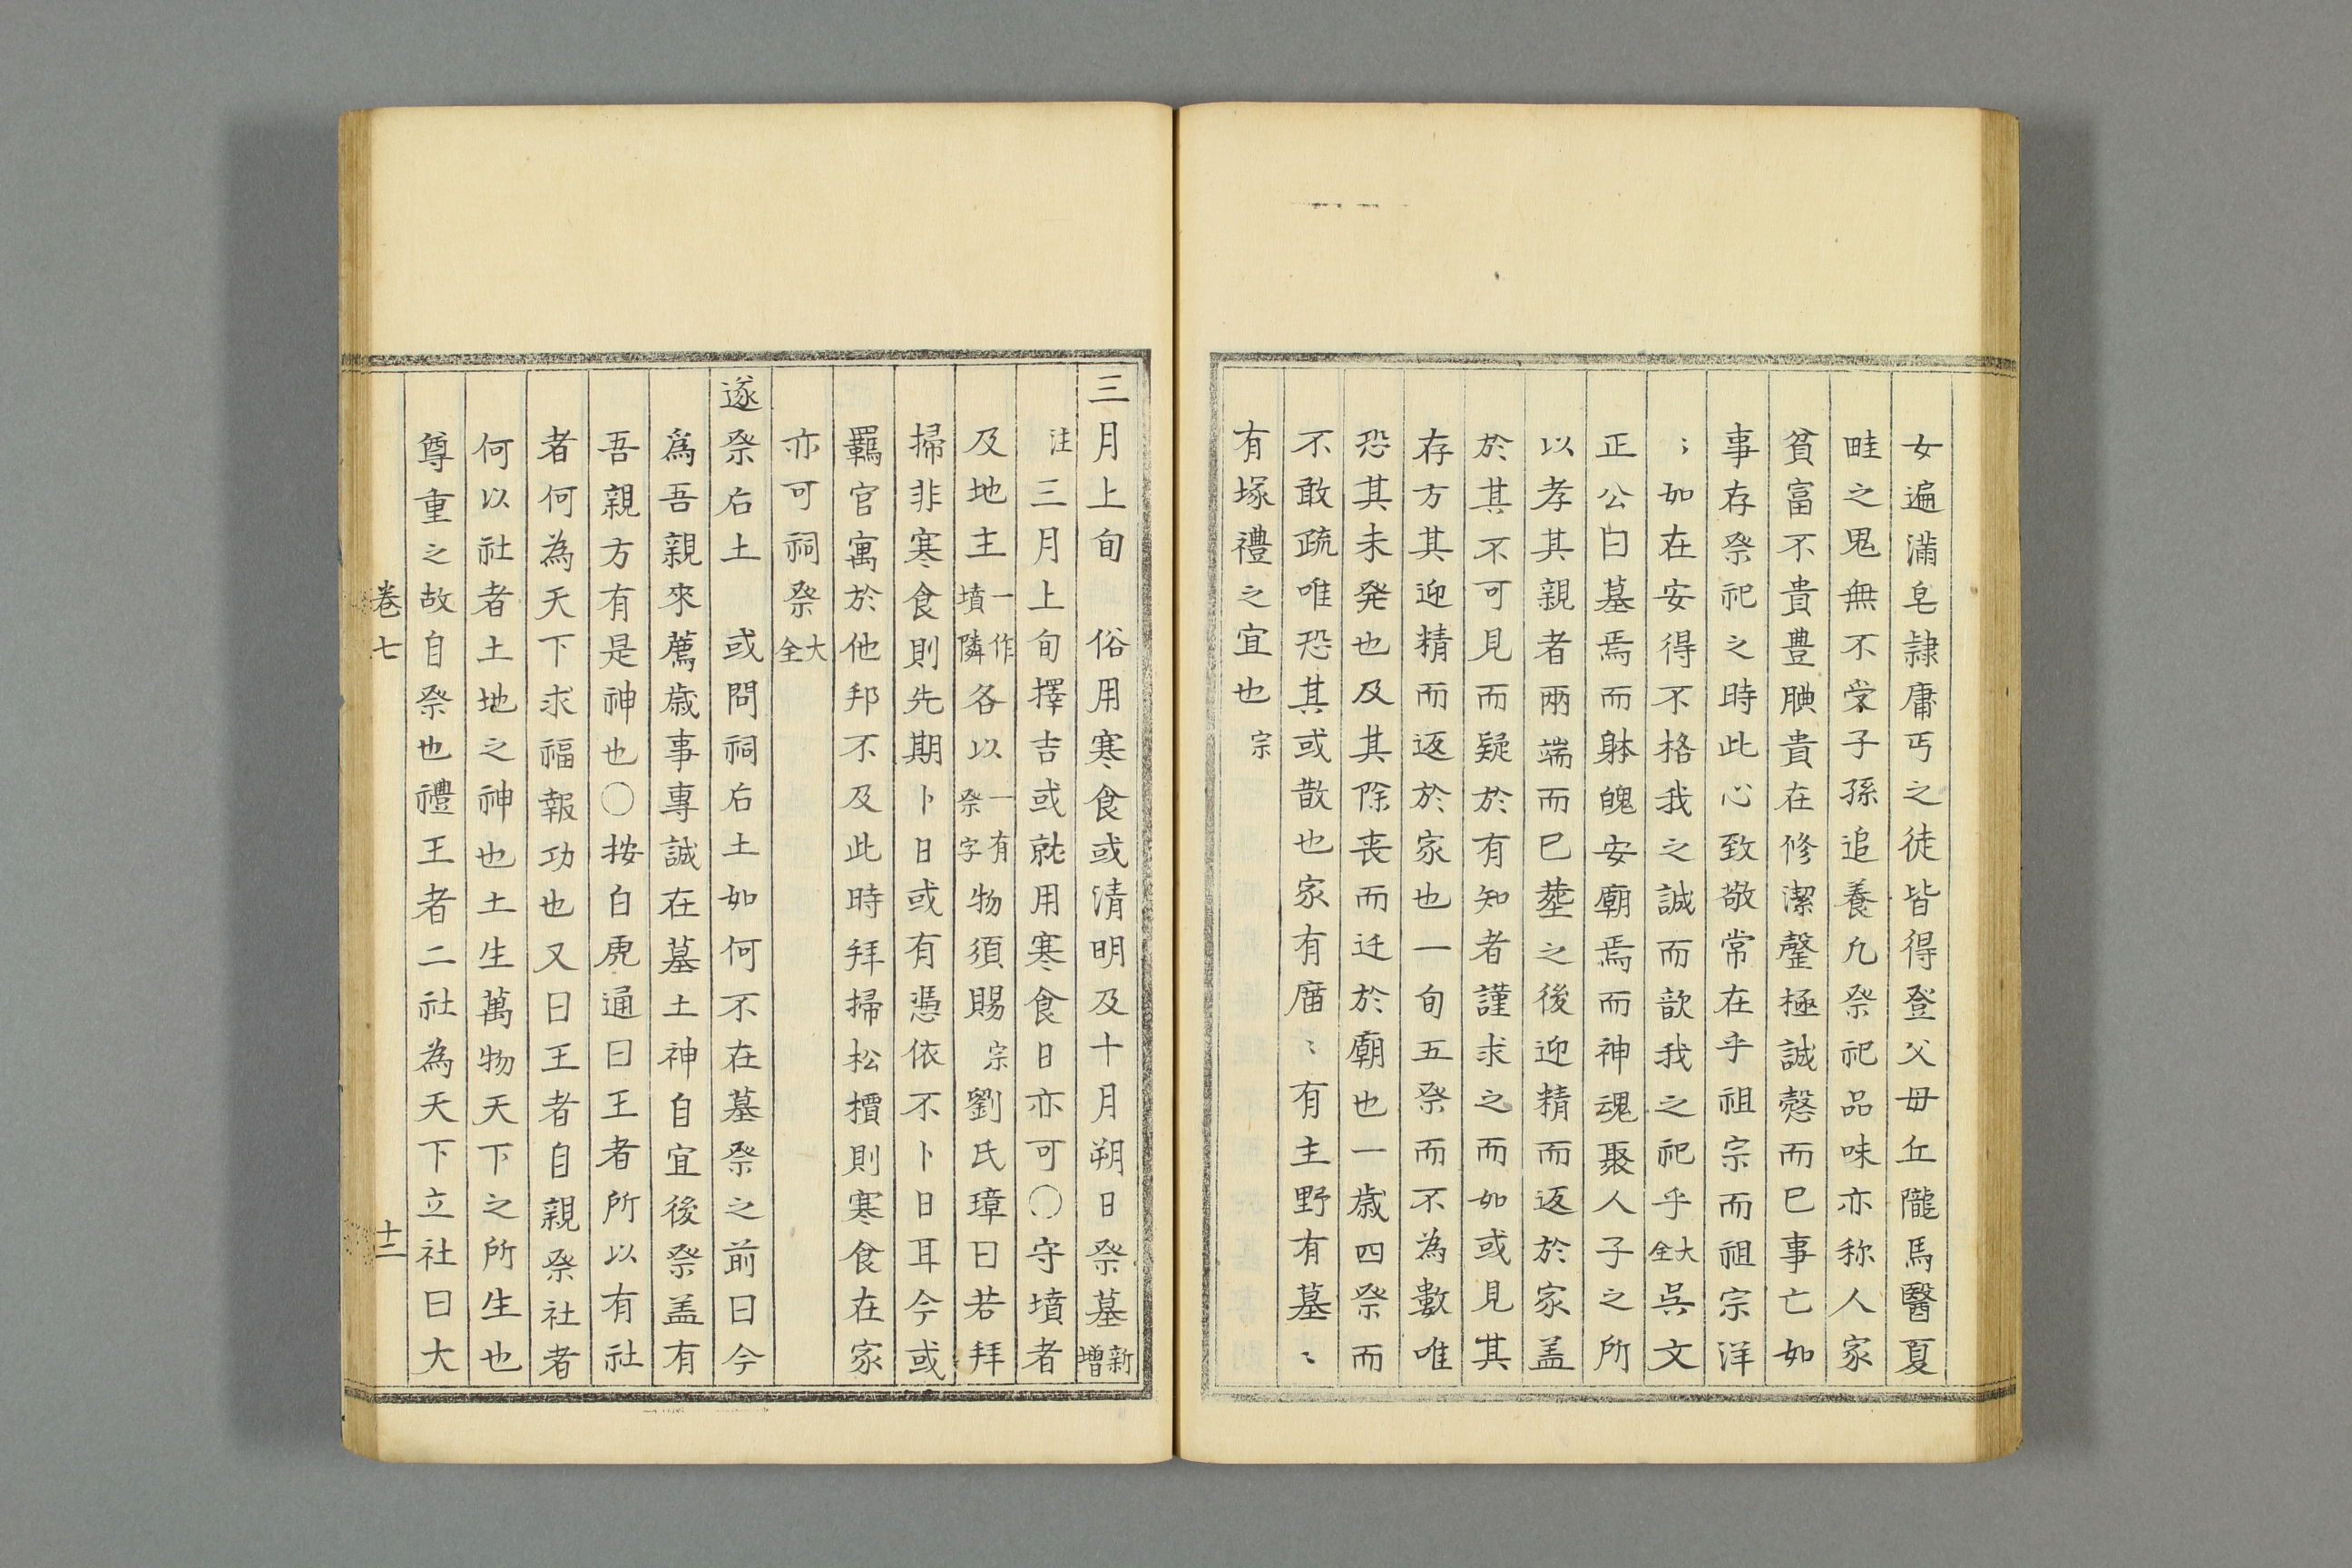 女遍滿皂隷庸丐之徒皆得登父母丘隴馬醫夏
畦之鬼無不受子孫追養凢祭祀品味亦称人家
貧富不貴豊腆貴在修潔罄極誠慤而已事亡如
事存祭祀之時此心致敬常在乎祖宗而祖宗洋
〻如在安得不格我之誠而歆我之祀乎大全吳文
正公曰墓焉而躰魄安廟焉而神魂聚人子之所
以孝其親者兩端而已塟之後迎精而返於家盖
於其不可見而疑於有知者謹求之而如或見其
存方其迎精而返於家也一旬五祭而不為數唯
恐其未発也及其除丧而迁於廟也一歳四祭而
不敢疏唯恐其或散也家有廟〻有主野有墓〻
有塚禮之宜也宗
三月上旬 俗用寒食或清明及十月朔日祭墓新增
注三月上旬擇吉或就用寒食日亦可〇守墳者
及地主一作墳隣各以一有祭字物須賜宗劉氏璋曰若拜
掃非寒食則先期卜日或有憑依不卜日耳今或
羈官寓於他邦不及此時拜掃松檟則寒食在家
亦可祠祭大全
遂祭后土 或問祠后土如何不在墓祭之前曰今
爲吾親來薦歳事專誠在墓土神自宜後祭盖有
吾親方有是神也〇按白虎通曰王者所以有社
者何為天下求福報功也又曰王者自親祭社者
何以社者土地之神也土生萬物天下之所生也
尊重之故自祭也禮王者二社為天下立社曰大
卷七 十二